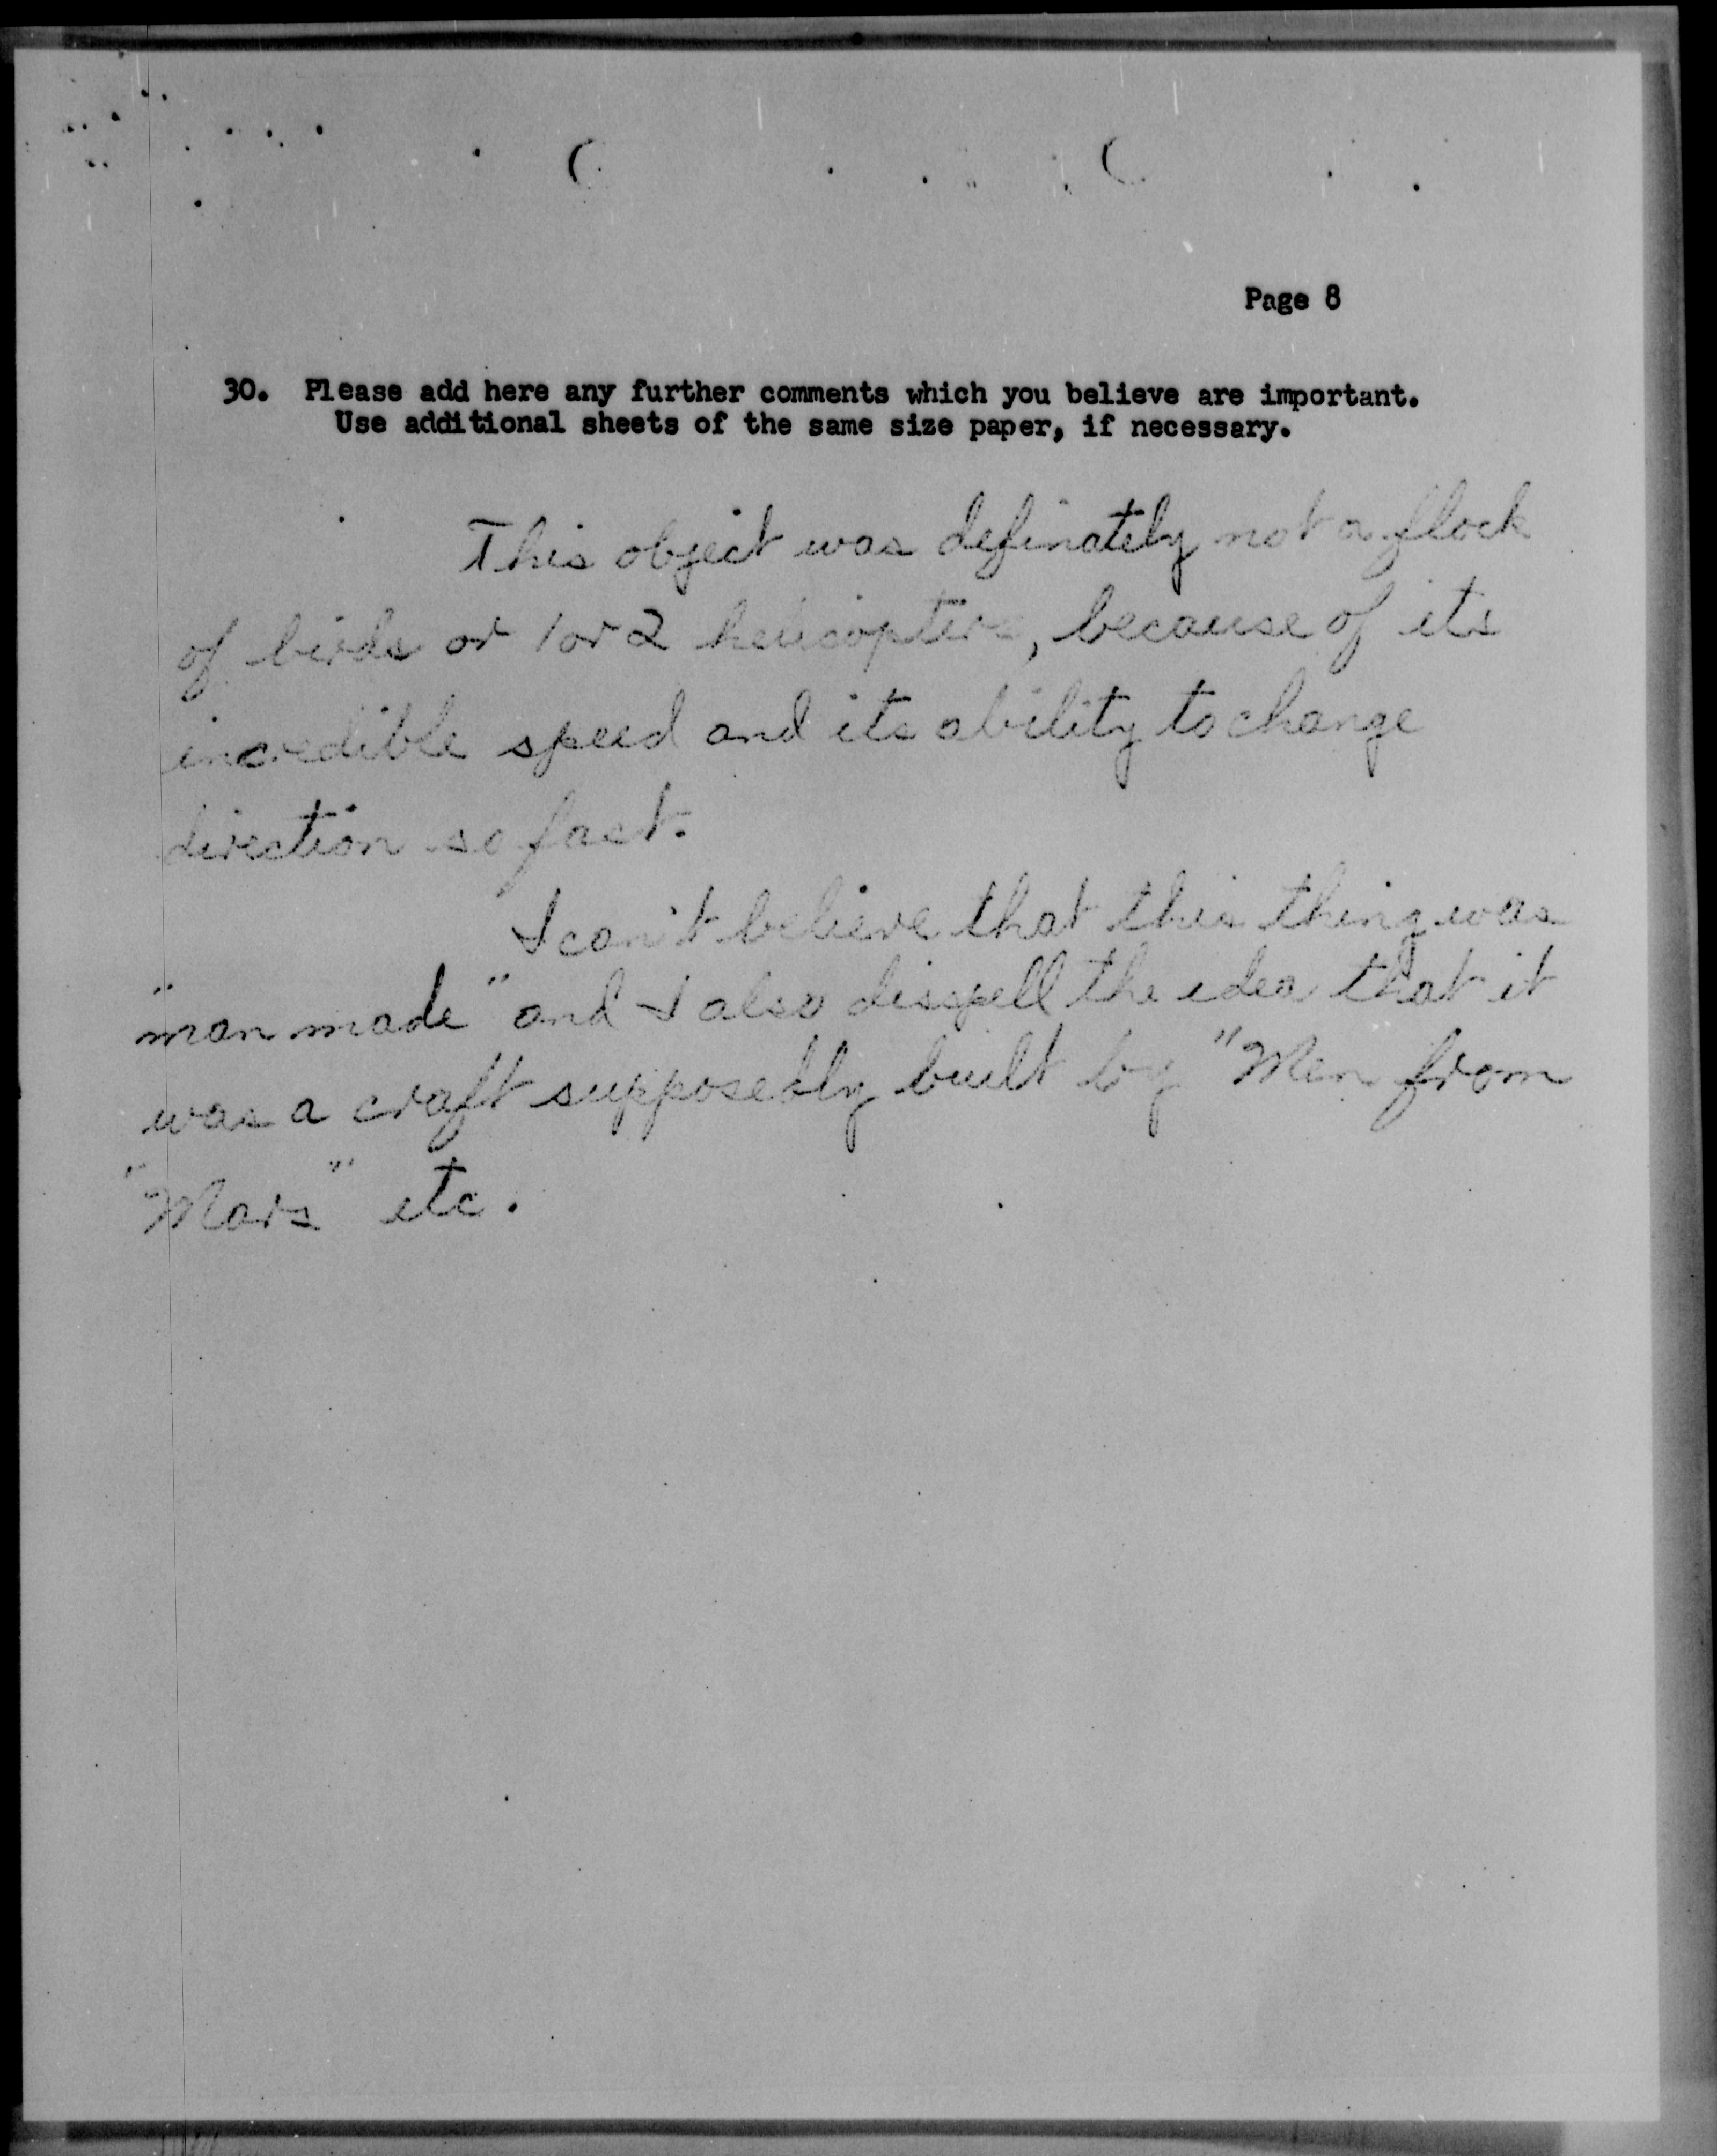 Page 8
30. Please add here any further comments which you believe are important.
Use additional sheets of the same size paper, if necessary.
This object was definately not a flock
of birds or 1 or 2 helicopters, because of its
incredible speed and its ability to change
direction so fast.
I can't believe that this thing was
"man made" and I also disspell the idea that it
was a craft supposedly built by "Men from
"Mars" etc.